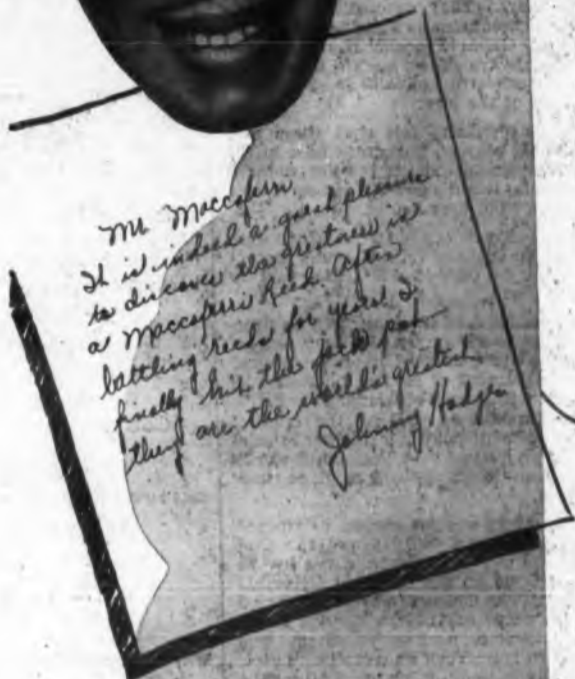 Mr. Maccaferri
It is indeed a great pleasure
to discover the greatness is
a Maccaferri Reed. After
battling reeds for years I
finally hit the jack pot
they are the world's greatest
Johnny Hodges